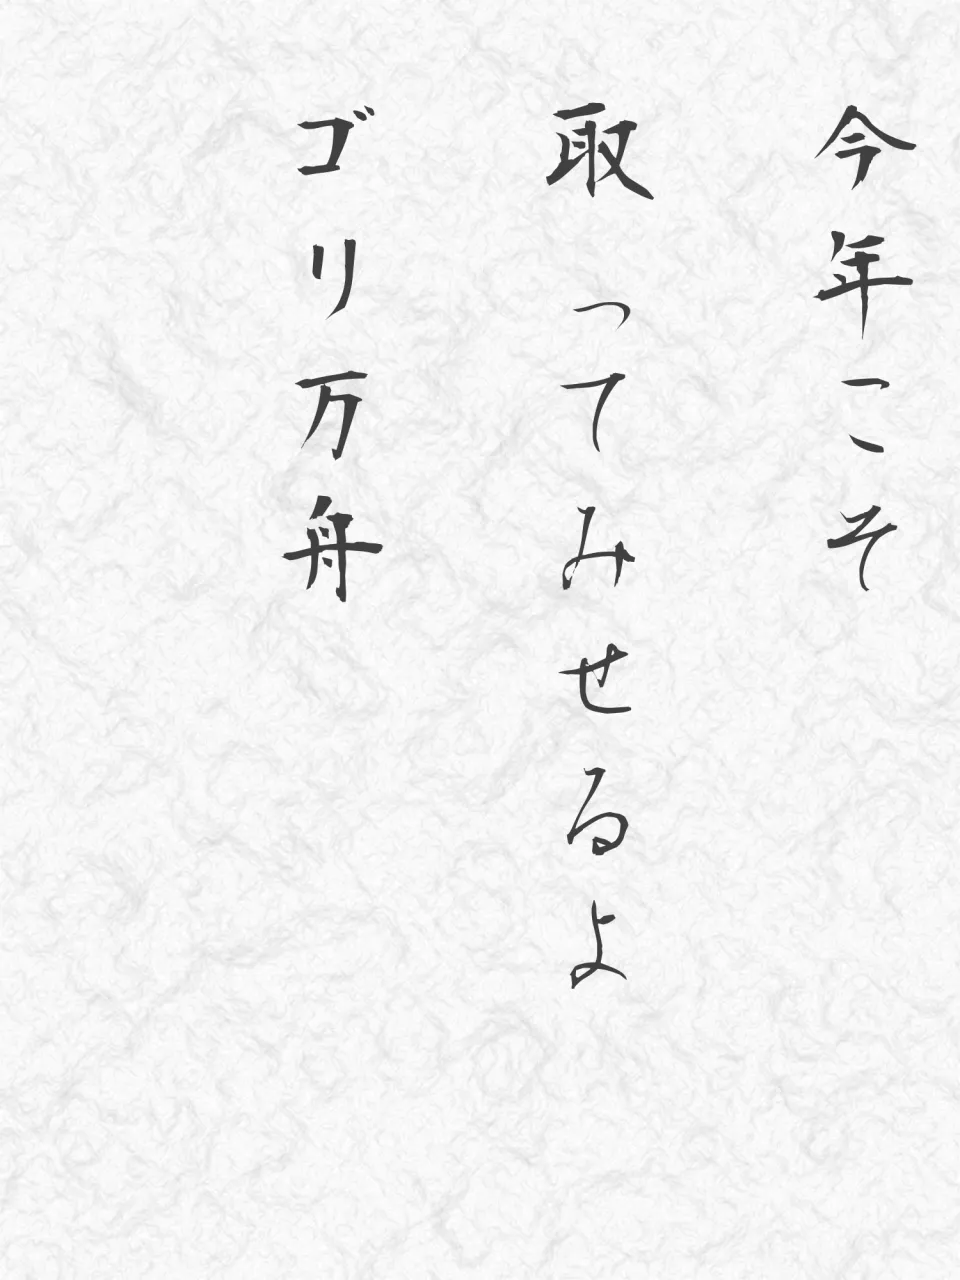 今年こそ
取ってみせるよ
ゴリ万舟